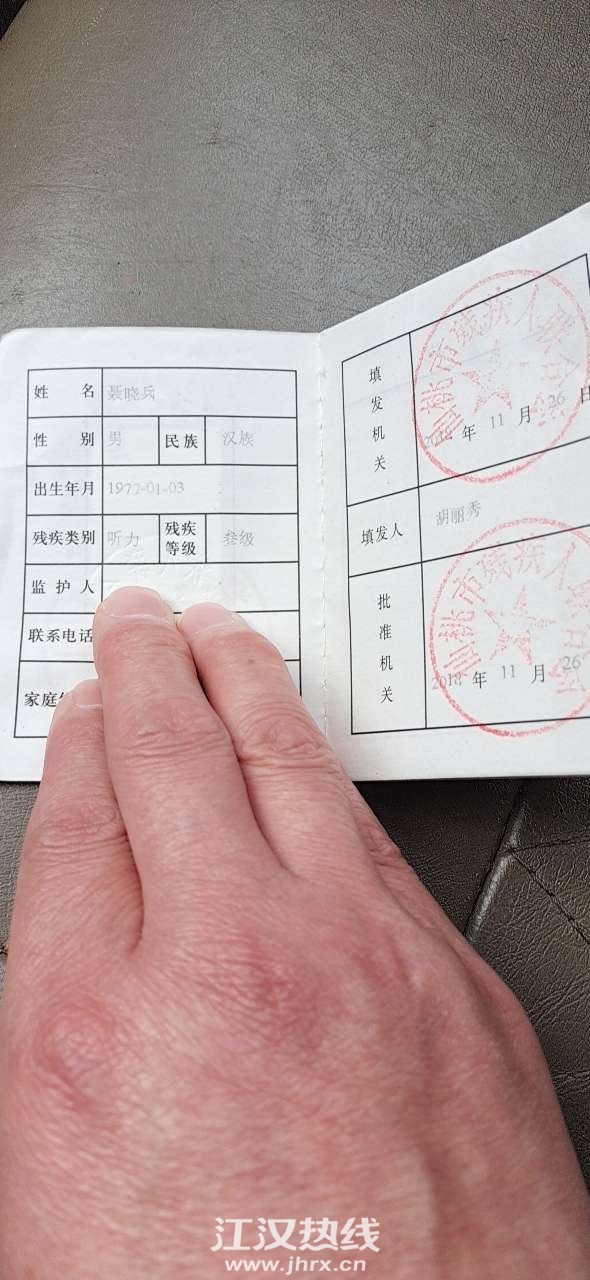 姓名 聂晓兵
性别 男 民族 汉族
出生年月 1972-01-03
残疾类别 听力 残疾等级 叁级
监护人
联系电话
家庭
填发机关
仙桃市残疾人联合会
2018 年 11 月 26 日
填发人 胡丽秀
批准机关
仙桃市残疾人联合会
2018 年 11 月 26
江汉热线
www.jhrx.cn